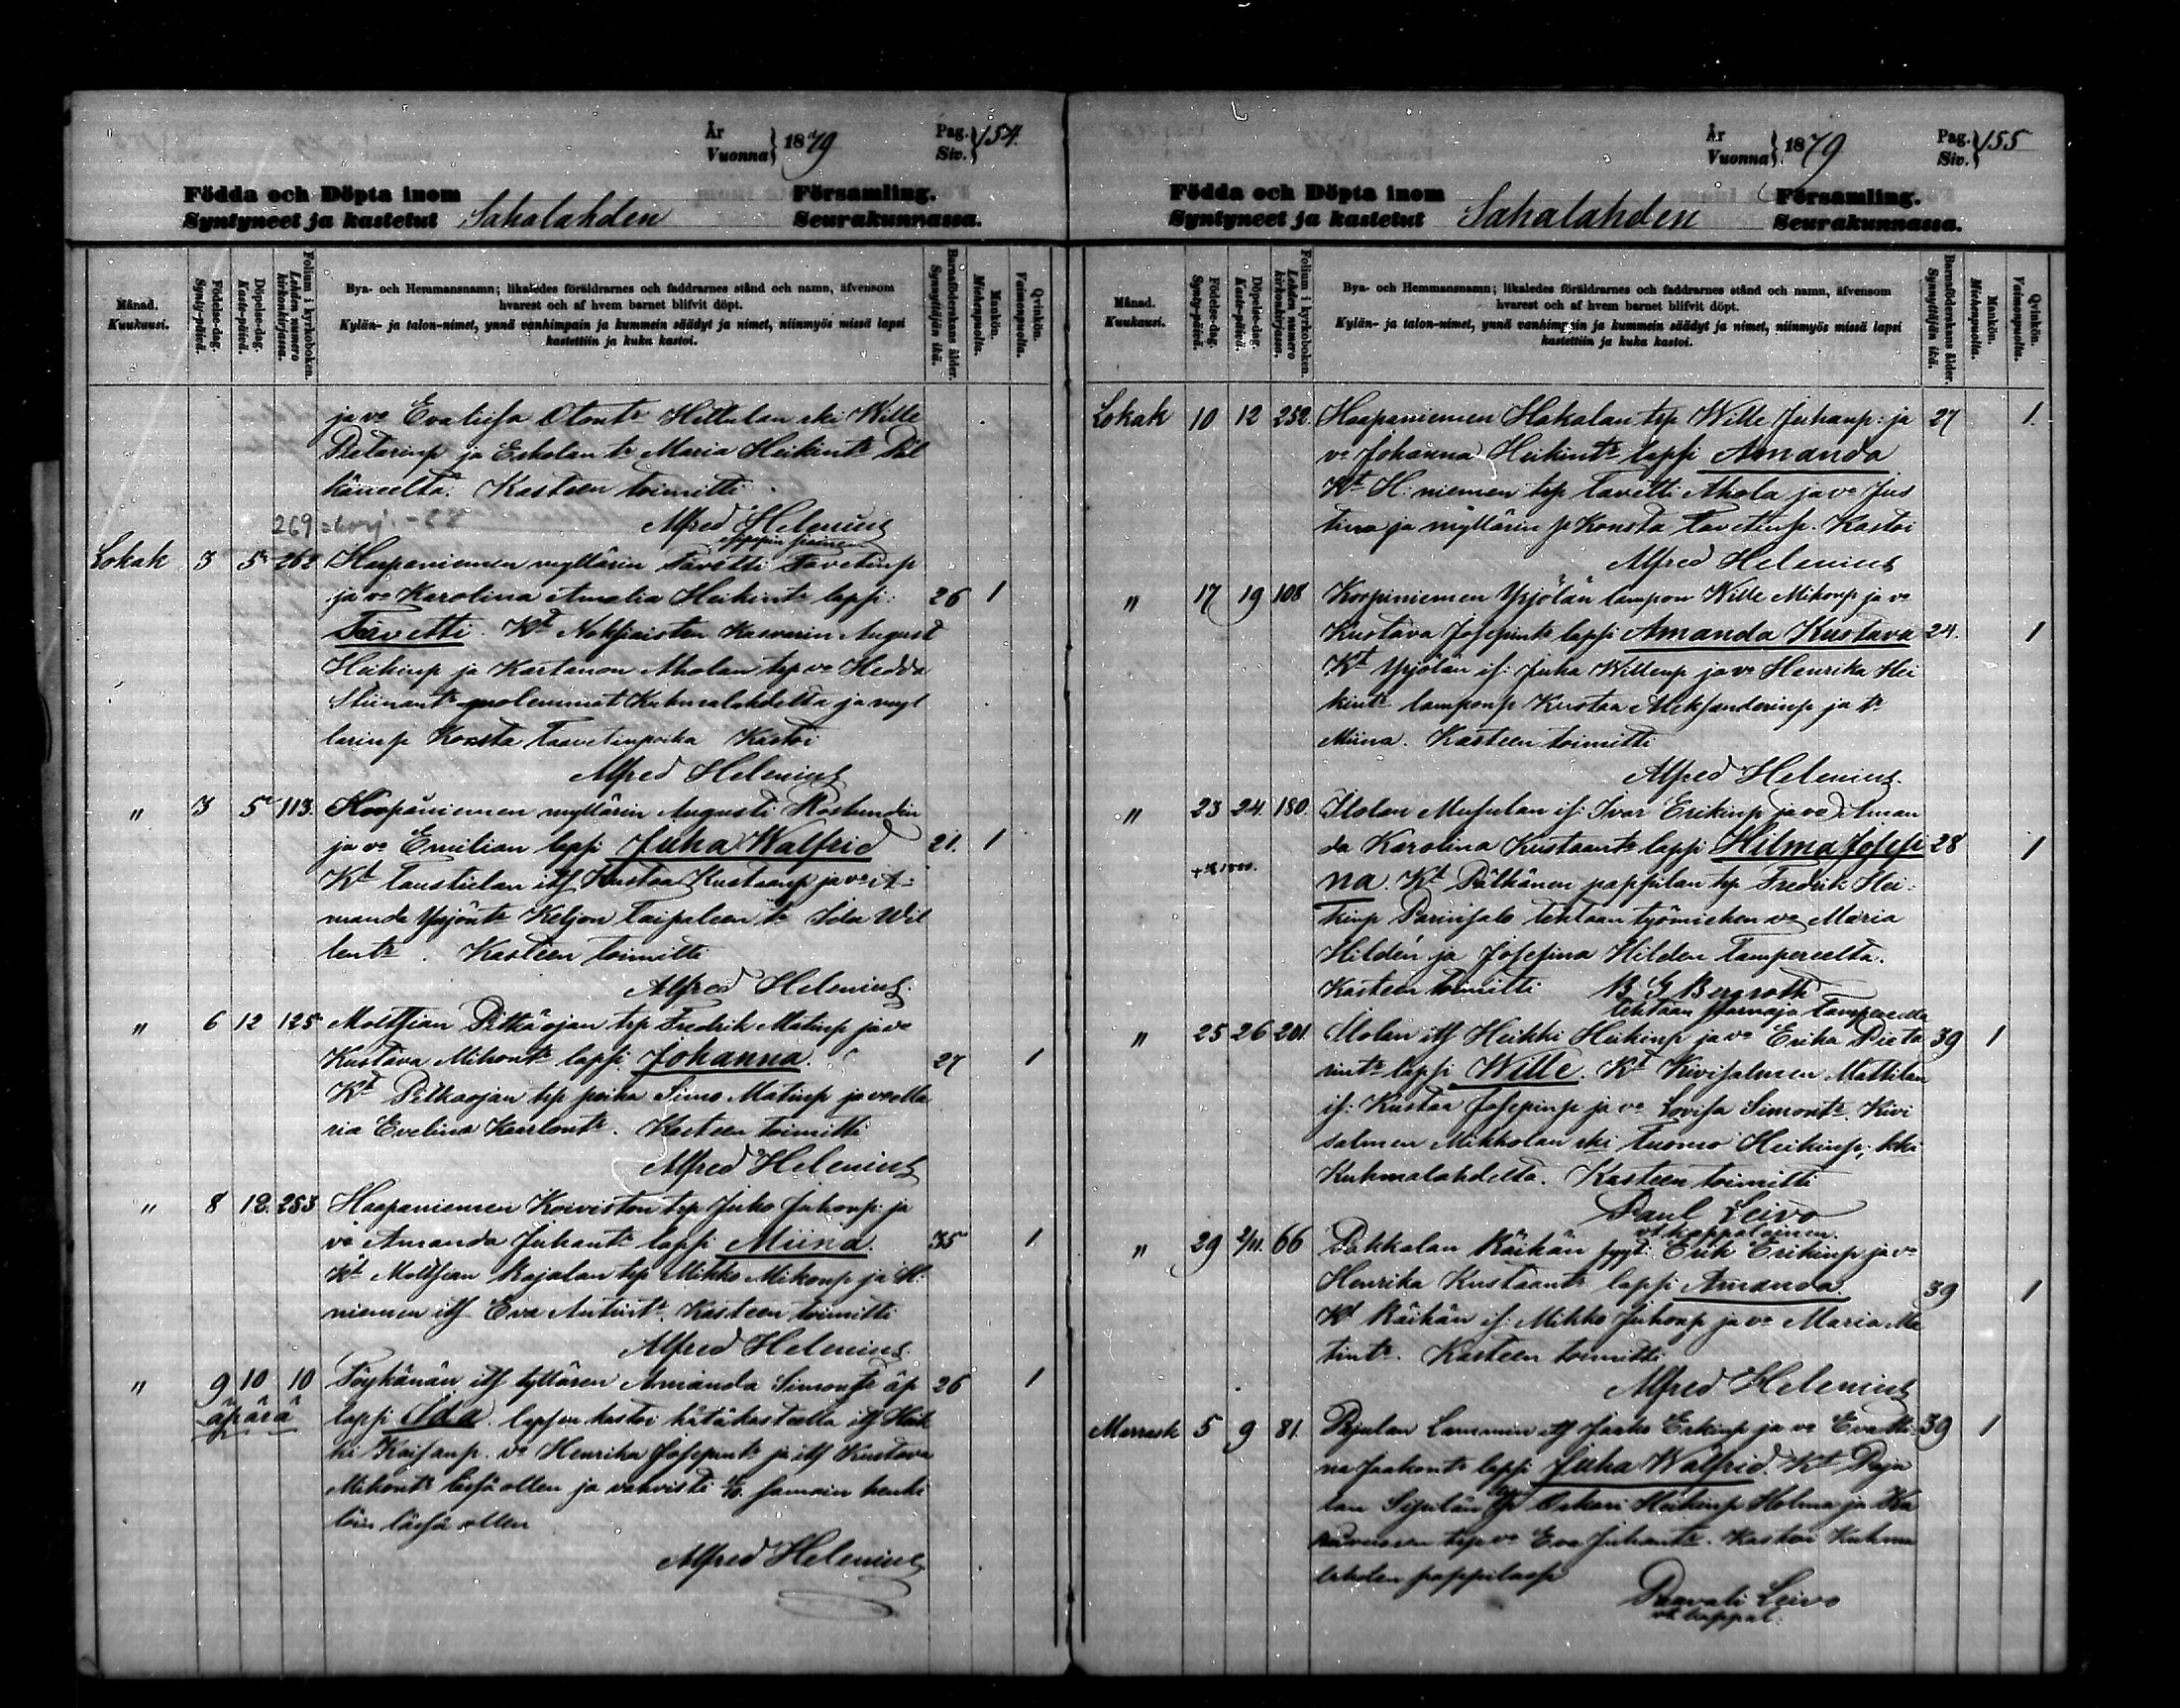 År
Vuonna } 1879
Pag.
Siv. } 154.
Födda och Döpta inom Församling.
Syntyneet ja kastetut Sahalahden Seurakunnassa.
Månad.
Kuukausi.
Födelse-dag.
Synty-päivä.
Döpelse-dag.
Kaste-päivä.
Folium i kyrkoboken.
Lehden numero kirkonkirjassa.
Bya- och Hemmansnamn; likaledes föräldrarnes och faddrarnes stånd och namn, äfvensom
hvarest och af hvem barnet blifvit döpt.
Kylän- ja talon-nimet, ynnä vanhimpain ja kummein säädyt ja nimet, niinmyös missä lapsi
kastettiin ja kuka kastoi.
Barnaföderskans ålder.
Synnyttäjän ikä.
Mankön.
Miehenpuolta.
Qvinkön.
Vaimonpuolta.
ja vo Evaliisa Otont. Wille
Pietarinp ja Eskolan tr Maria Heikint. Päl
käneeltä. Kasteen toimitti
Alfred Helenius
269
Lokak 3 5 262 Haapaniemen myllärin Tavetti Tavetinp
ja vo Karolina Amalia Heikint. lapsi: 26 1
Tavetti. Kt August
Heikinp ja Kartanon Aholan trp vo Hedda
Kuhmalahdelta ja myl
lärinp Konsta Taavetinpoika Kastoi
Alfred Helenius
" 3 5 113. Haapaniemen myllärin Augusti
ja vo Emilian lapsi Juha Walfrid 21. 1
Kt itf Kustaa Kustaanp ja vo A-
manda Yrjönt. Keljon Taipaleen tr Ida Wil
lent. Kasteen toimitti
Alfred Helenius.
" 6 12 125 Moltsian Pitkäojan trp Fredrik Matinp ja vo
Kustava Mikont. lapsi Johanna. 27 1
Kt Pitkäojan trp poika Simo Matinp ja vo Ma
ria Evelina Kaarlont. Kasteen toimitti
Alfred Helenius
" 8 12. 253 Haapaniemen Koiviston trp Juho Juhonp: ja
vo Amanda Juhant. lapsi Miina. 35 1
Kt Moltsian Rajalan trp Mikko Mikonp ja H:
niemen itf Eva Antint. Kasteen toimitti
Alfred Helenius.
" 9 10 10 itf tyttären Amanda Simont. äp 26 1
äpärä lapsi Ida. lapsen kastoi hätäkasteella itf Heik
ki Kaisanp. vo Henrika Josepint. ja itf Kustava
Mikont. läsnä ollen ja vahvisti samain henki
löin läsnä ollen
Alfred Helenius
År
Vuonna } 1879
Pag.
Siv. } 155
Födda och Döpta inom Församling.
Syntyneet ja kastetut Sahalahden Seurakunnassa.
Månad.
Kuukausi.
Födelse-dag.
Synty-päivä.
Döpelse-dag.
Kaste-päivä.
Folium i kyrkoboken.
Lehden numero kirkonkirjassa.
Bya- och Hemmansnamn; likaledes föräldrarnes och faddrarnes stånd och namn, äfvensom
hvarest och af hvem barnet blifvit döpt.
Kylän- ja talon-nimet, ynnä vanhimpain ja kummein säädyt ja nimet, niinmyös missä lapsi
kastettiin ja kuka kastoi.
Barnaföderskans ålder.
Synnyttäjän ikä.
Mankön.
Miehenpuolta.
Qvinkön.
Vaimonpuolta.
Lokak 10 12 252. Haapaniemen Hakalan trp Wille Juhanp: ja 27 1.
vo Johanna Heikint. lapsi Amanda
Kt H:niemen trp Tavetti Ahola ja vo Jus
tiina ja myllärin p Konsta Tavetinp. Kastoi
Alfred Helenius
" 17 19 108 Korpiniemen Yrjölän lampon Wille Mikonp ja vo
Kustava Josepint. lapsi Amanda Kustava 24. 1
Kt Yrjölän is: Juha Willenp ja vo Henrika Hei
kint. lamponp Kustaa Aleksanderinp ja tr
Miina. Kasteen toimitti
Alfred Helenius.
" 23 24. 180. Itolan is: Ivar Erikinp ja vo Aman
da Karolina Kustaant. lapsi Hilma Josefi 28 1
na. Kt Pälkänen pappilan trp Fredrik Hei:
kinp tehtaan työmiehen vo Maria
Hildén ja Josefina Hilden Tampereelta.
Kasteen toimitti B G Bergroth
tehtaan saarnaja Tampereella
" 25 26 201. Itolan itf Heikki Heikinp ja vo Erika Pieta 39 1
rint. lapsi Wille. Kt Kivisalmen Mattilan
is: Kustaa Josepinp ja vo Lovisa Simont. Kivi
salmen Mikkolan rki Tuomo Heikinp; kki
Kuhmalahdelta. Kasteen toimitti
Paul Leivo
vt kappalainen.
" 29 2/11. 66 Pakkalan Räikän Erik Erikinp ja vo
Henrika Kustaant. lapsi Amanda. 39 1
Kt Räikän is: Mikko Juhonp ja vo Maria Ma
tint. Kasteen toimitti
Alfred Helenius
Marrask 5 9 81. Pajulan Lammin itf Jaako Erkinp ja vo Eva 39 1
na Jaakont. lapsi Juha Walfrid. Kt Paju
lan Sipilän trp Oskari Heikinp Holma ja
trp vo Eva Juhant. Kastoi Kuhma
lahden pappilassa
Paavali Leivo
vt kappal: